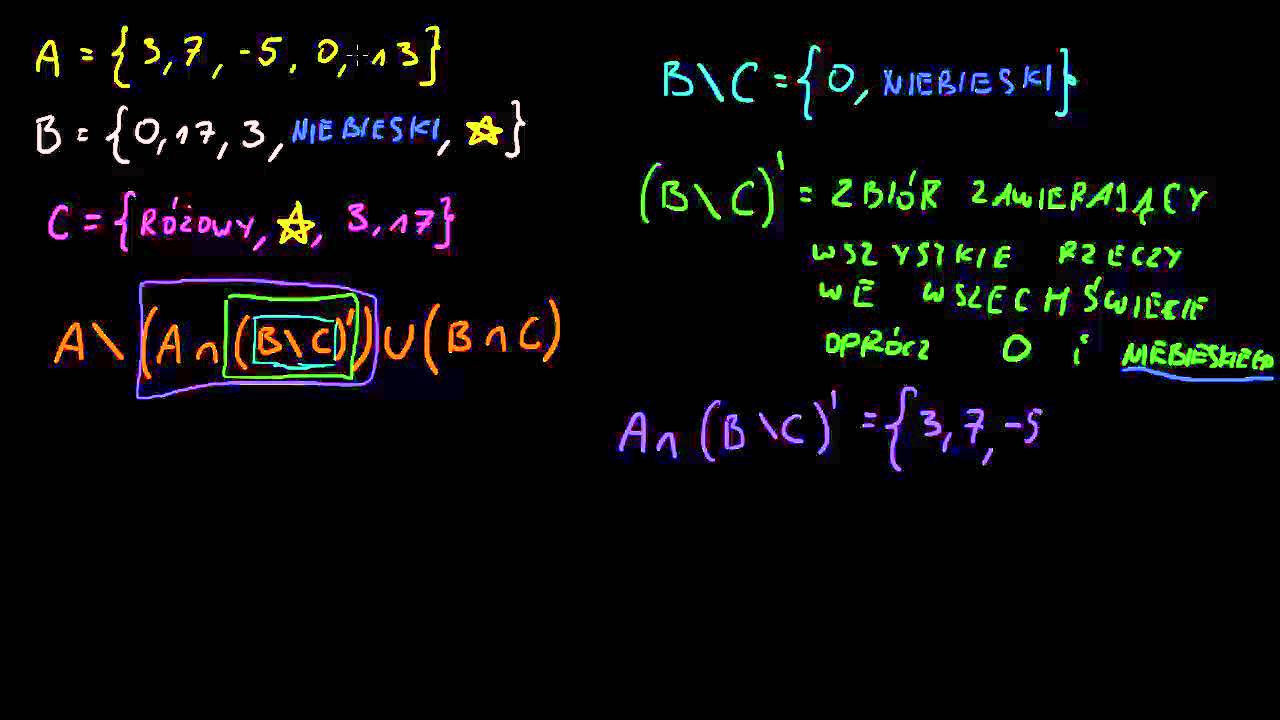 A = {3, 7, -5, 0, 13}
B = {0, 17, 3, NIEBIESKI, ☆}
C = {RÓŻOWY, ☆, 3, 17}
A \ (A ∩ (B \ C)') ∪ (B ∩ C)
B \ C = {0, NIEBIESKI}
(B \ C)' = ZBIÓR ZAWIERAJĄCY
WSZYSZKIE RZECZY
WE WSZECHŚWIECIE
OPRÓCZ 0 i NIEBIESKIEGO
A ∩ (B \ C)' = {3, 7, -5